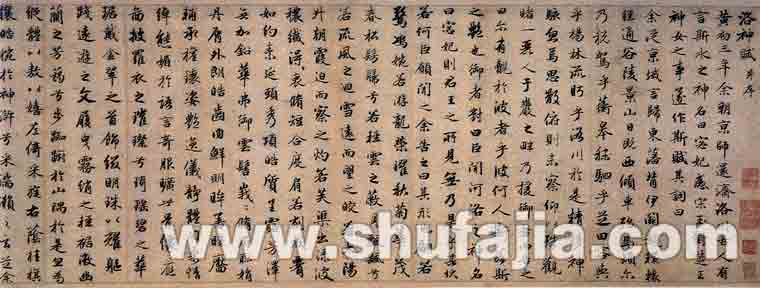 洛神賦 并序
黃初三年余朝京師還濟洛川古人有
言斯水之神名曰宓妃感宋玉對楚王
神女之事遂作斯賦其詞曰
余從京域言歸東藩背伊闕越轘轅
經通谷陵景山日既西傾車殆馬煩爾
乃稅駕乎蘅皋秣駟乎芝田容與
乎楊林流眄乎洛川於是精移神
駭忽焉思散俯則未察仰以殊觀
睹一麗人于巖之畔乃援御者而告之
曰爾有覿於彼者乎彼何人斯若此
之豔也御者對曰臣聞河洛之神名
曰宓妃則君王之所見無乃是乎其狀
若何臣願聞之余告之曰其形也翩若
驚鴻婉若游龍榮曜秋菊華茂
春松髣髴兮若輕雲之蔽月飄颻兮
若流風之迴雪遠而望之皎若太陽
升朝霞迫而察之灼若芙蕖出淥波
穠纖得衷脩短合度肩若削成
如約素延頸秀項皓質呈露芳澤
無加鉛華弗御雲髻峩峩脩眉聯娟
丹脣外朗皓齒內鮮明眸善睞靨
輔承權瓌姿豔逸儀靜體閑柔情
綽態媚於語言奇服曠世骨像應
圖披羅衣之璀璨兮珥瑤碧之華
琚戴金翠之首飾綴明珠以耀軀
踐遠遊之文履曳霧綃之輕裾微幽
蘭之芳藹兮步踟躕於山隅於是忽焉
縱體以敖以嬉左倚采旄右蔭桂旗
攘皓腕於神滸兮采湍瀨之玄芝余
www.shufajia.com